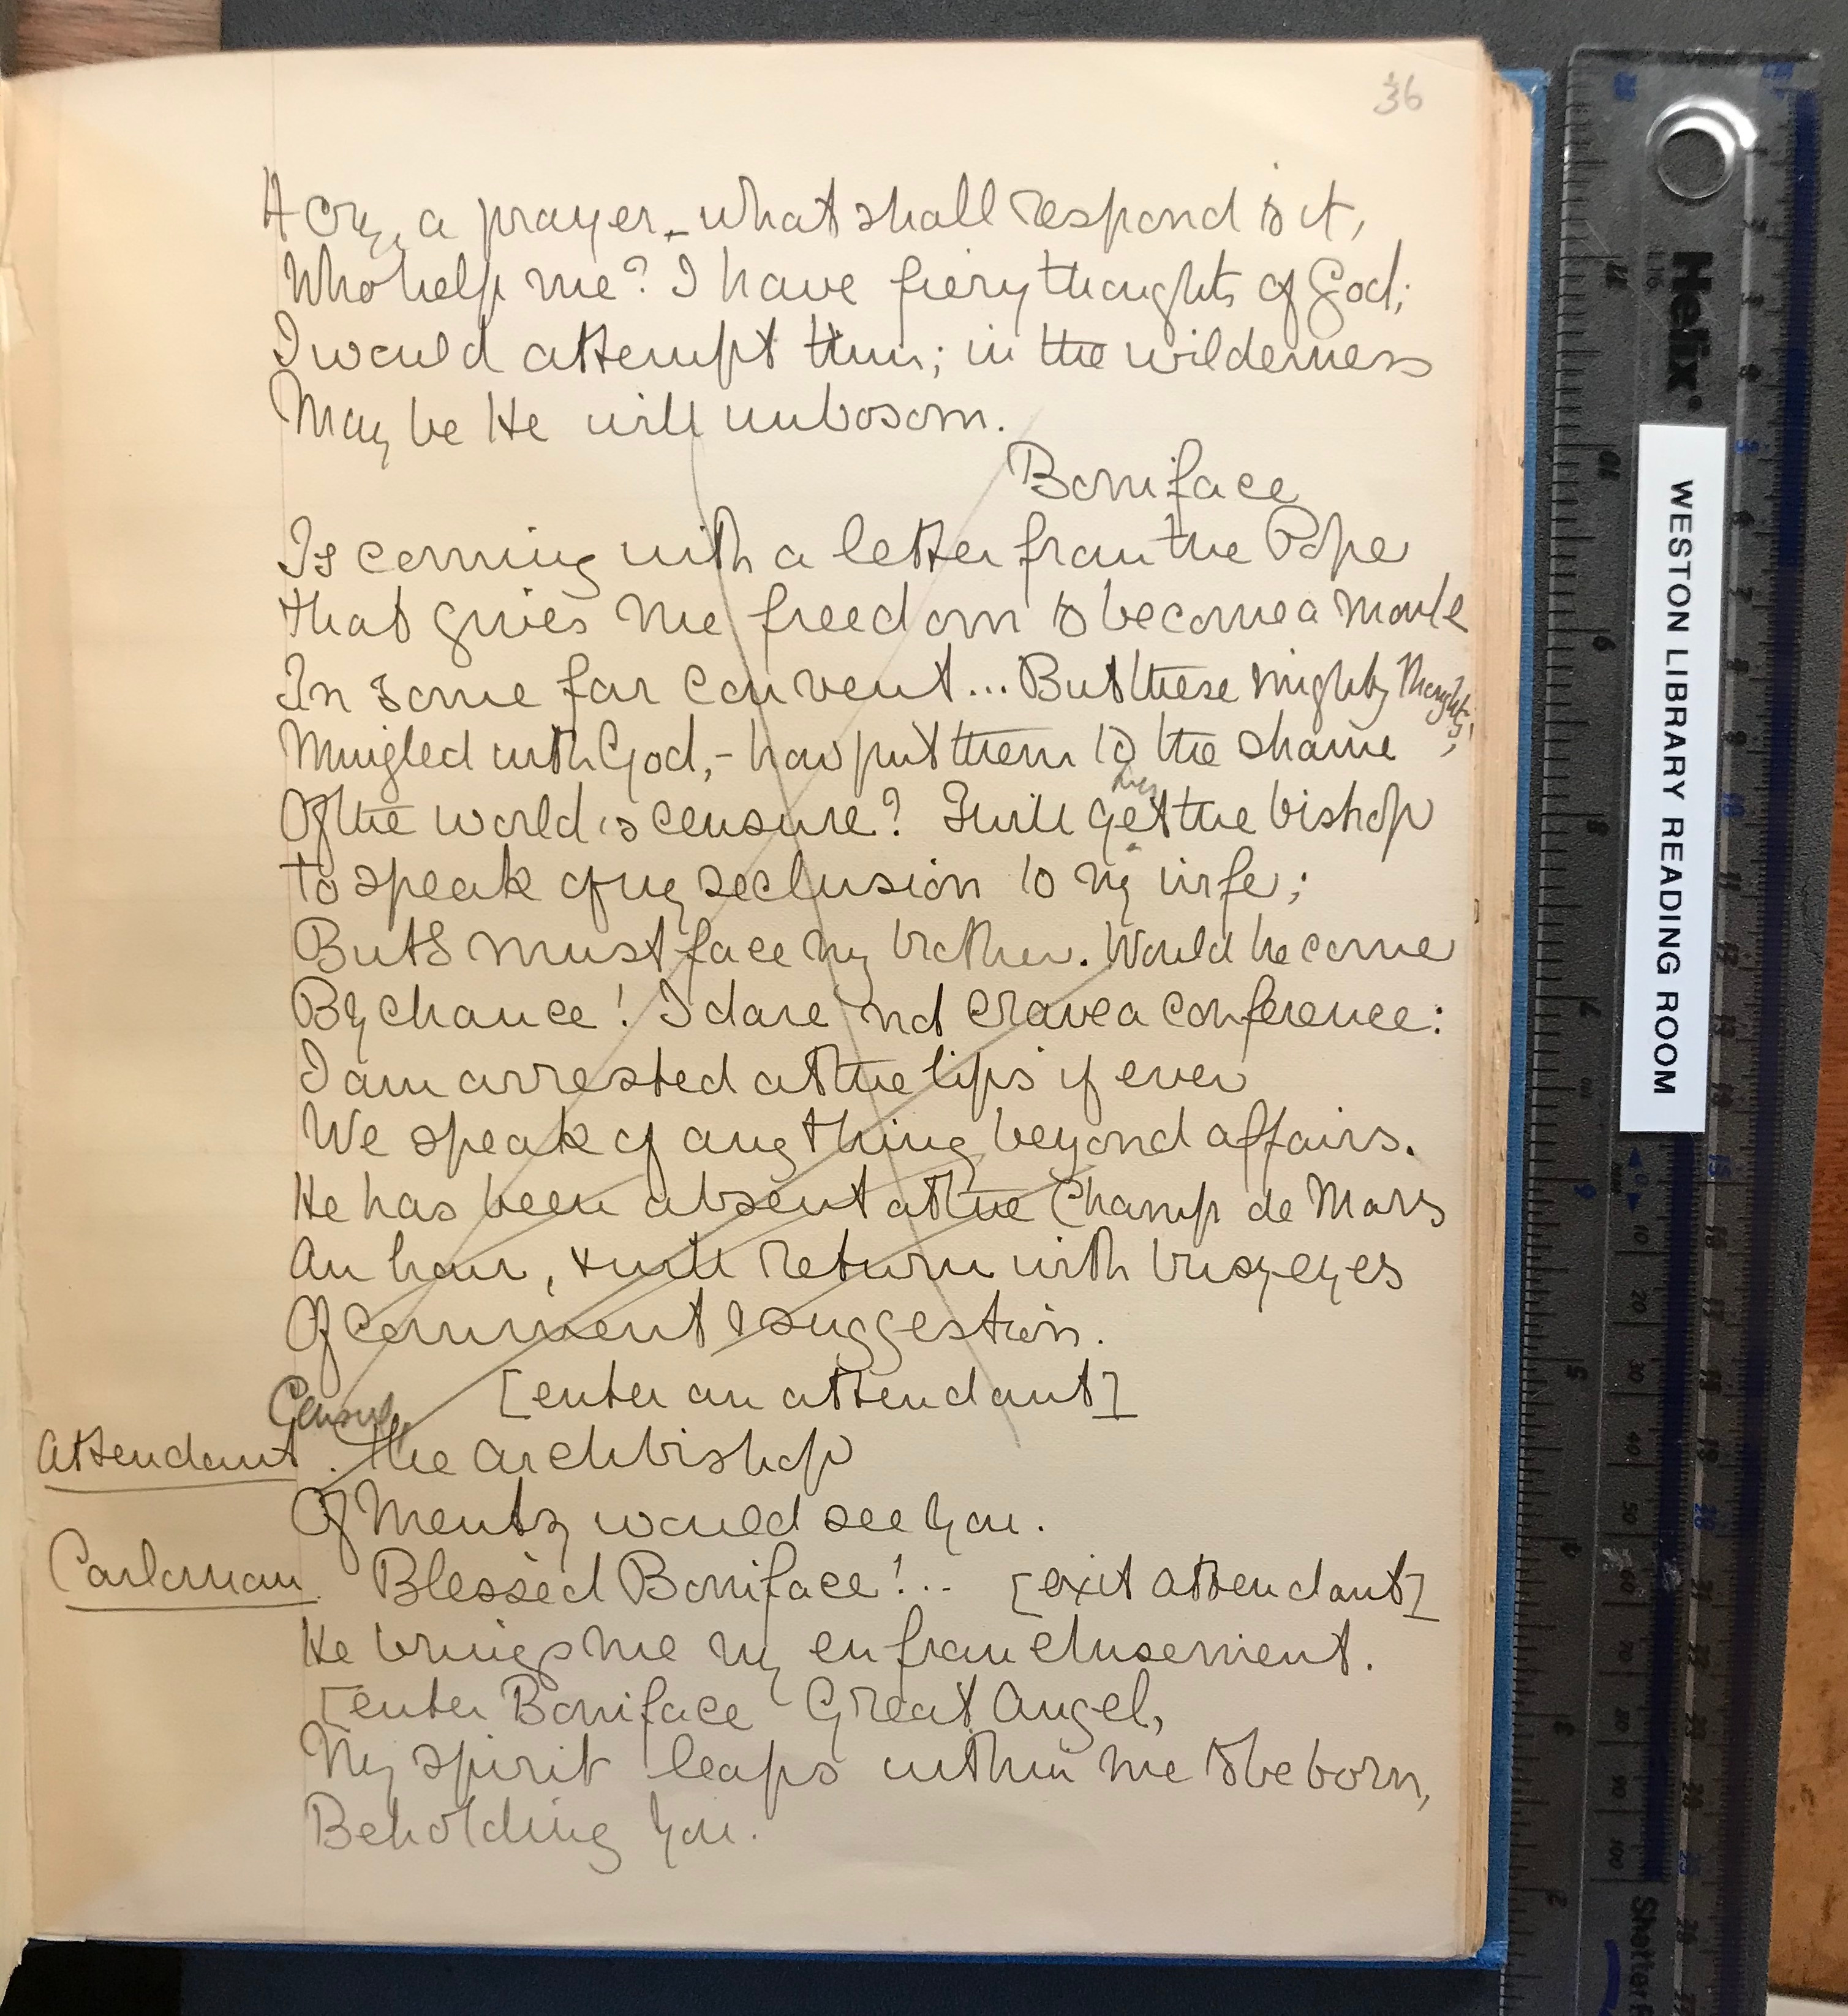 36
A cry, a prayer, – what shall respond to it,
Who help me? I have fiery thoughts of God;
I would attempt them; in the wilderness
May be He will unbosom.
Boniface
Is coming with a letter from the Pope
that gives me freedom to become a monk
In some far convent... But these mighty thoughts,
Mingled with God, – how put them to the shame
Of the world's censure? I will get the bishop
to speak of my seclusion to my wife;
But I must face my brother. Would he come
By chance! I dare not crave a conference:
I am arrested at the lips if ever
We speak of anything beyond affairs.
He has been absent at the Champ de Mars
An hour, & will return with busy eyes
Of comment & suggestion.
[enter an attendant]
Attendant. The archbishop
Of Mentz would see you.
Carloman. Blessed Boniface!.. [exit attendant]
He brings me my enfranchisement.
[enter Boniface Great Angel,
My spirit leaps within me to be born,
Beholding you.
Helix
WESTON LIBRARY READING ROOM
Shatter